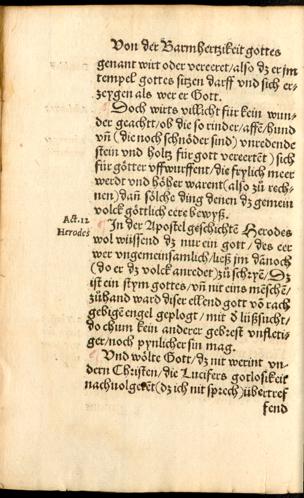 Von der Barmhertzikeit gottes
genant wirt oder vereeret/also dz er jm
tempel gottes sitzen darff vnd sich er-
zeygen als wer er Gott.
Doch wirts villicht für kein wun-
der geachtt/ob die so rinder/affē/hund
vn̄ (die noch schnöder sind) vnredende
stein vnd holtz für gott vereertēt) sich
für götter vffwurffent/die frylich meer
werdt vnd höher warent (also zü rech-
nen) dan̄ sölche ding denen dz gemein
volck göttlich eere bewyß.
Act.12
Herodes
In der Apostel geschichtē Herodes
wol wüssend dz nur ein gott/des eer
wer vngemeinsamlich/ließ jm dānoch
(do er dz volck anredet) zü schryē/Dz
ist ein stym gottes/vn̄ nit eins mēschē/
zühand ward diser ellend gott vō rach
gebigē engel geplogt/mit d̄ lüßsucht/
do chum kein anderer gebrest vnfleti-
ger/noch pynlicher sin mag.
Vnd wölte Gott/dz nit werint vn-
dern Christen/die Lucifers gotlosikeit
nachuolgetēt (dz ich nit sprech) übertref
fend